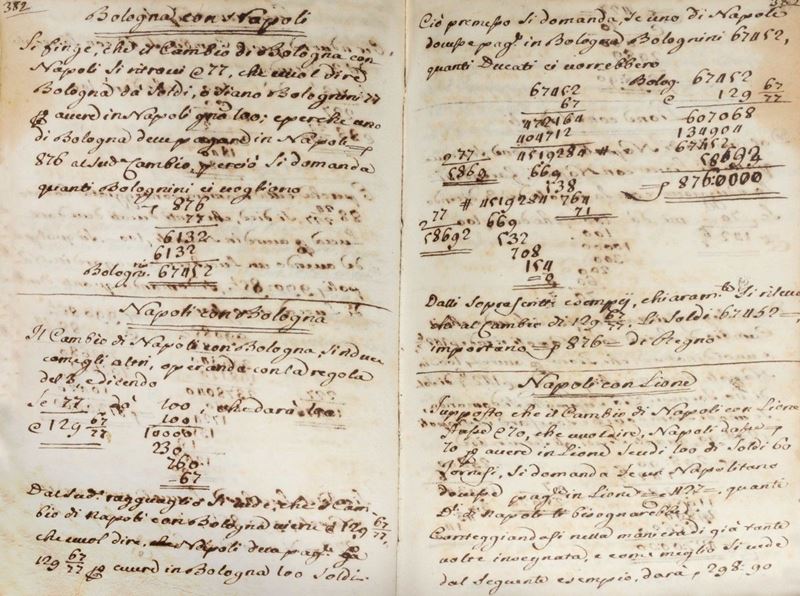 382
Bologna con Napoli
Si finge, che il Cambio di Bologna con
Napoli si ritrovi @ 77, che vuol dire
Bologna dà Soldi, o siano Bolognini 77
p avere in Napoli 100; e perche uno
di Bologna deve pagare in Napoli
876 al sud. Cambio, perciò si domanda
quanti Bolognini ci vogliono
876
77
6132
6132
Bologni. 67452
Napoli con Bologna
Il Cambio di Napoli con Bologna si riduce
come gli altri, operando con la regola
del 3, e dicendo
Se 77 dà 100, che darà 100
@ 129 67/77 100
10000
230
760
67
Dal sud. ragguaglio si vede, che il Cam-
bio di Napoli con Bologna viene @ 129 67/77,
che vuol dire, Napoli deve pag.
129 67/77 p avere in Bologna 100 Soldi.
382
Ciò premesso si domanda, se uno di Napoli
dovesse pag. in Bologna Bolognini 67452,
quanti Ducati ci vorrebbero
67452
67
472164
404712
p 77 4519284 #
5869 669
538
# 4519284 764
77 71
58692 669
532
708
154
0
Bolog. 67452
@ 129 67/77
607068
134904
67452
58692
p 876:0000
Dalli soprascritti esempij, chiaram. si rileva
che al Cambio di 129 67/77. Li Soldi 67452
importano p 876 di Regno
Napoli con Lione
Supposto che il Cambio di Napoli con Lione
@ 70, che vuol dire, Napoli dasse p
70 p avere in Lione Scudi 100 di Soldi 60
Tornesi, si domanda se un Napolitano
dovesse pag. in Lione 427 quanti
D. di Napoli bisognarebbe
Conteggiandosi nella maniera di già tante
volte insegnata, e come meglio si vede
dal seguente esempio, darà p 298:90